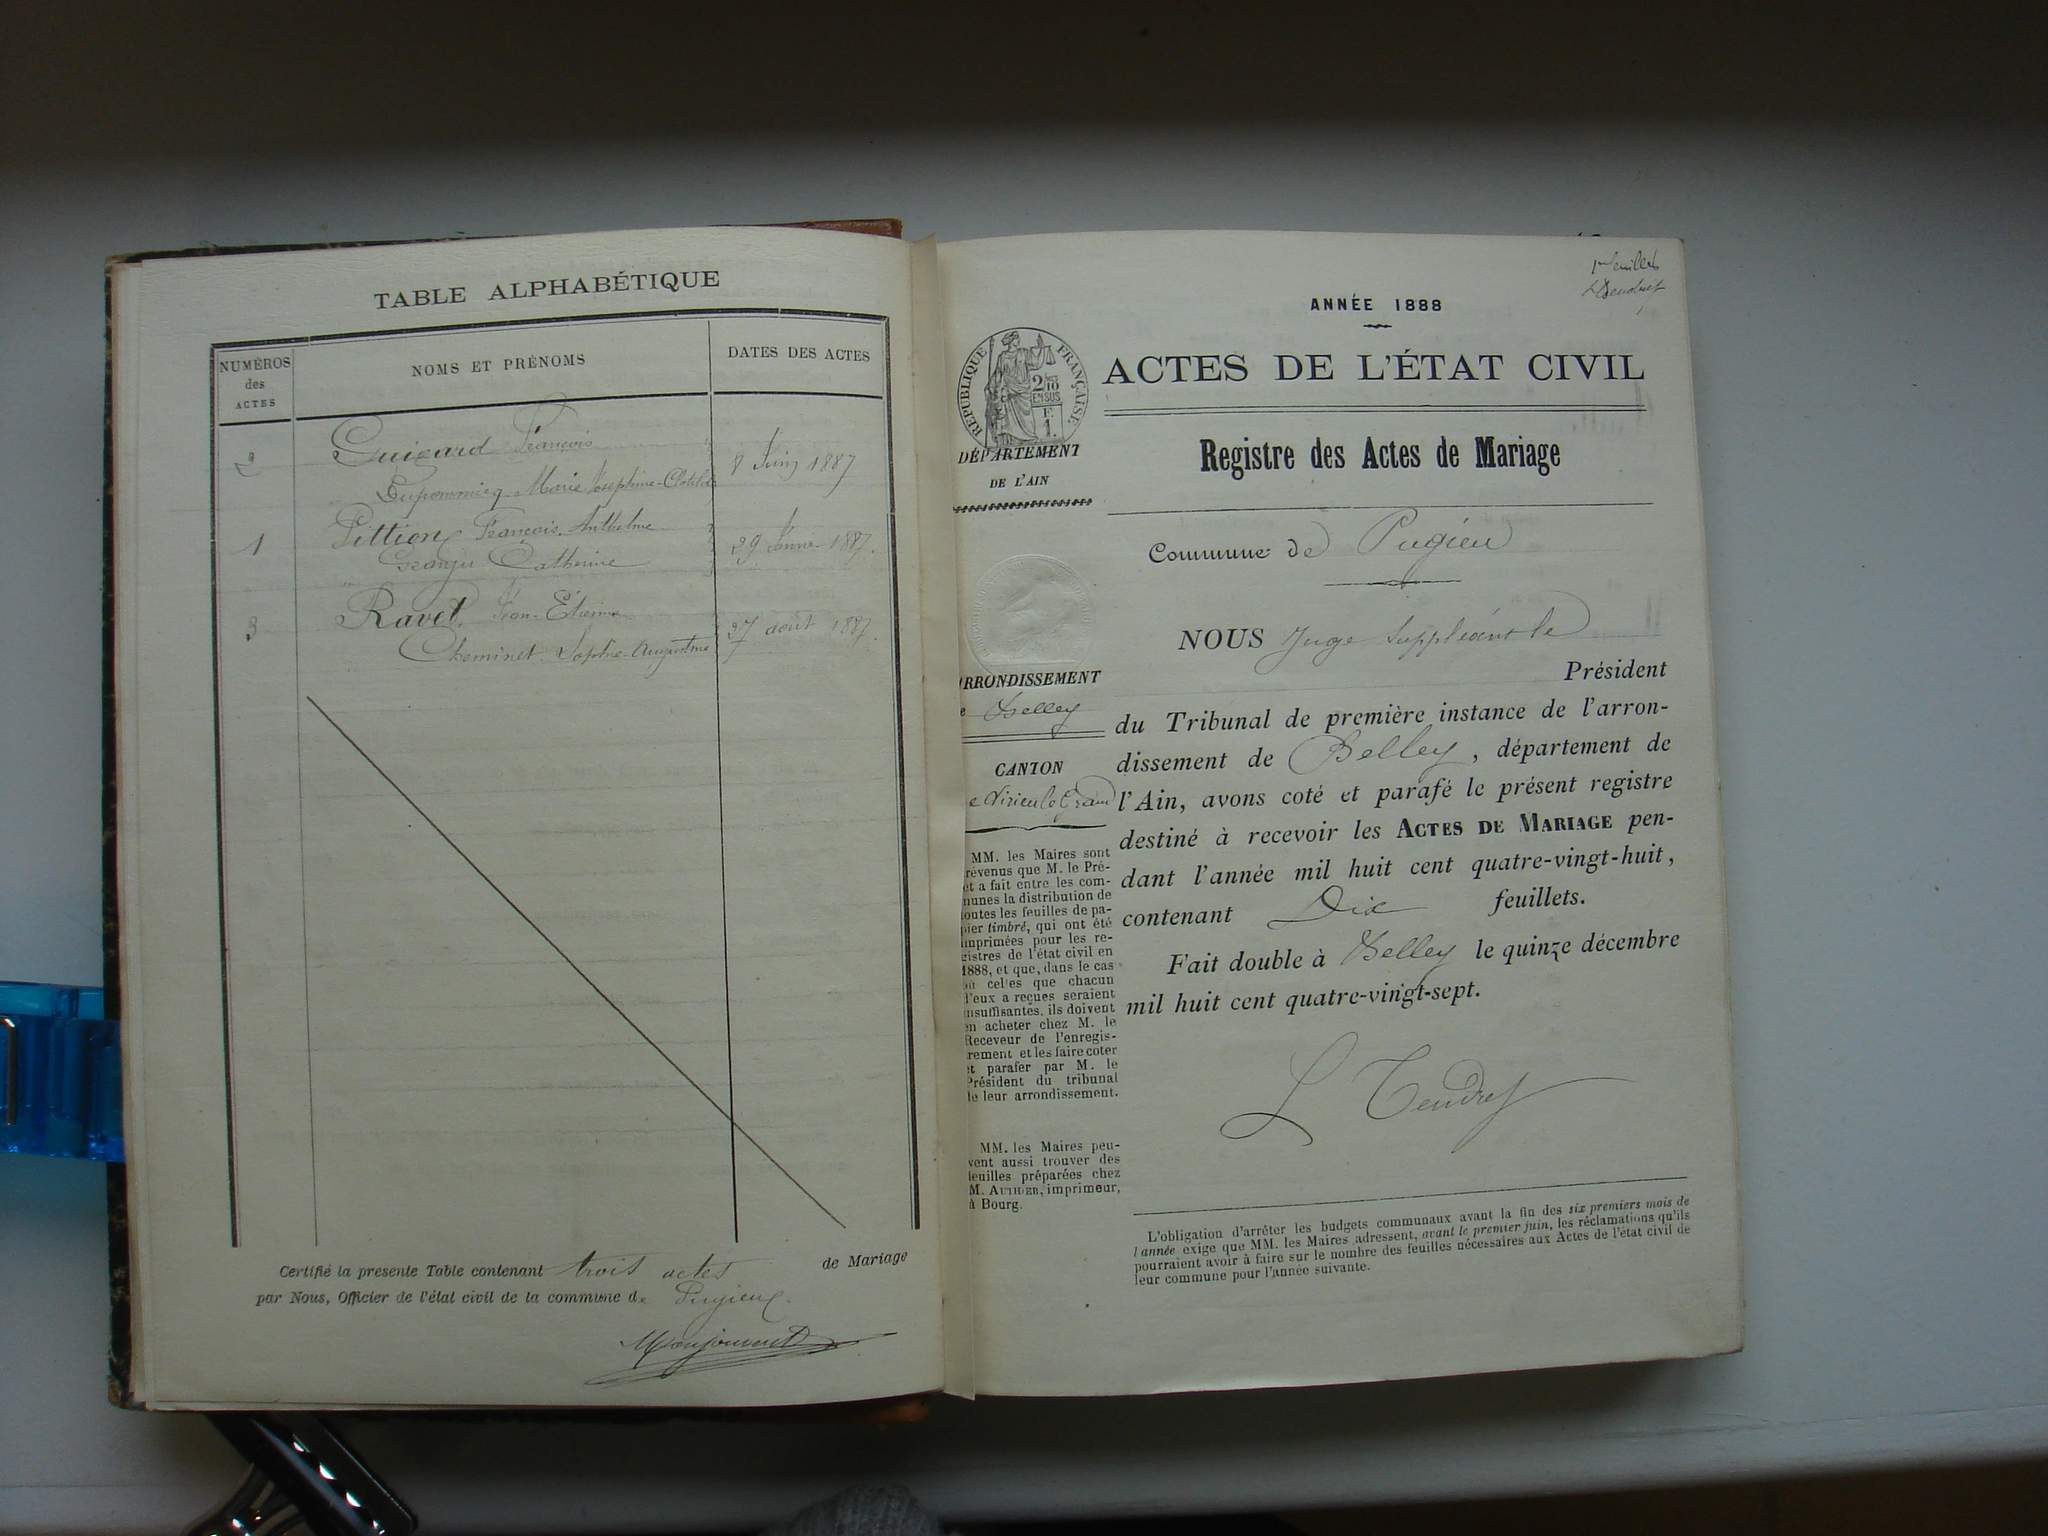 TABLE ALPHABÉTIQUE
NUMÉROS
des
ACTES
NOMS ET PRÉNOMS
DATES DES ACTES
2 Guigard François
8 Juin 1887
Marie Josephine-Clotilde
1 Pittion François Anthelme
29 1887.
Catherine
3 Ravet Jean-Etienne
27 août 1887.
Cheminet Sophie-Augustine
Certifié la presente Table contenant trois actes de Mariage
par Nous, Officier de l'état civil de la commune de Pugieu
ANNÉE 1888
RÉPUBLIQUE FRANÇAISE
2/10
EN SUS
F.
1.
ACTES DE L'ÉTAT CIVIL
DÉPARTEMENT
DE L'AIN
Registre des Actes de Mariage
Commune de Pugieu
RRONDISSEMENT
e Belley
CANTON
e Virieu le Grand
MM. les Maires sont
révenus que M. le Pré-
et a fait entre les com-
munes la distribution de
outes les feuilles de pa-
pier timbré, qui ont été
imprimées pour les re-
gistres de l'état civil en
1888, et que, dans le cas
ou celles que chacun
d'eux a reçues seraient
insuffisantes, ils doivent
en acheter chez M. le
Receveur de l'enregis-
rement et les faire coter
et parafer par M. le
Président du tribunal
de leur arrondissement.
MM. les Maires peu-
vent aussi trouver des
feuilles préparées chez
M. AUTHIER, imprimeur,
à Bourg.
NOUS Juge Suppléant le
Président
du Tribunal de première instance de l'arron-
dissement de Belley, département de
l'Ain, avons coté et parafé le présent registre
destiné à recevoir les ACTES DE MARIAGE pen-
dant l'année mil huit cent quatre-vingt-huit,
contenant Dix feuillets.
Fait double à Belley le quinze décembre
mil huit cent quatre-vingt-sept.
L Tendret
L'obligation d'arrêter les budgets communaux avant la fin des six premiers mois de
l'année exige que MM. les Maires adressent, avant le premier juin, les réclamations qu'ils
pourraient avoir à faire sur le nombre des feuilles nécessaires aux Actes de l'état civil de
leur commune pour l'année suivante.